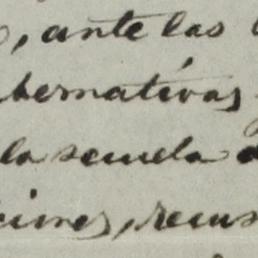 , ante las
bernativas
la secuela
ciones, recus